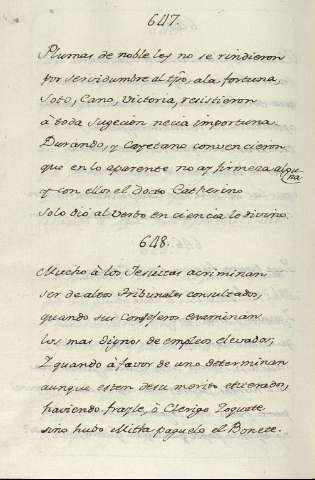 647.
Plumas de noble ley no se rindieron
por servidumbre al tpo, a la fortuna,
Soto, Cano, Victoria, resistieron
à toda sugecion necia importuna.
Durando, y Cayetano convencieron
que en lo aparente no ay firmeza alguna
y con ellos el Docto Catherino
Solo diò al Verbo en ciencia lo divino.
648.
Mucho à los Jesuitas acriminan
ser de altos Tribunales consultados,
quando sus Confesores examinan
los mas dignos de empleos elevados;
Y quando à favor de uno determinan
aunque esten de su merito
haviendo frayle, ò Clerigo Zoquete
sino hubo Mitra paguelo el Bonete.